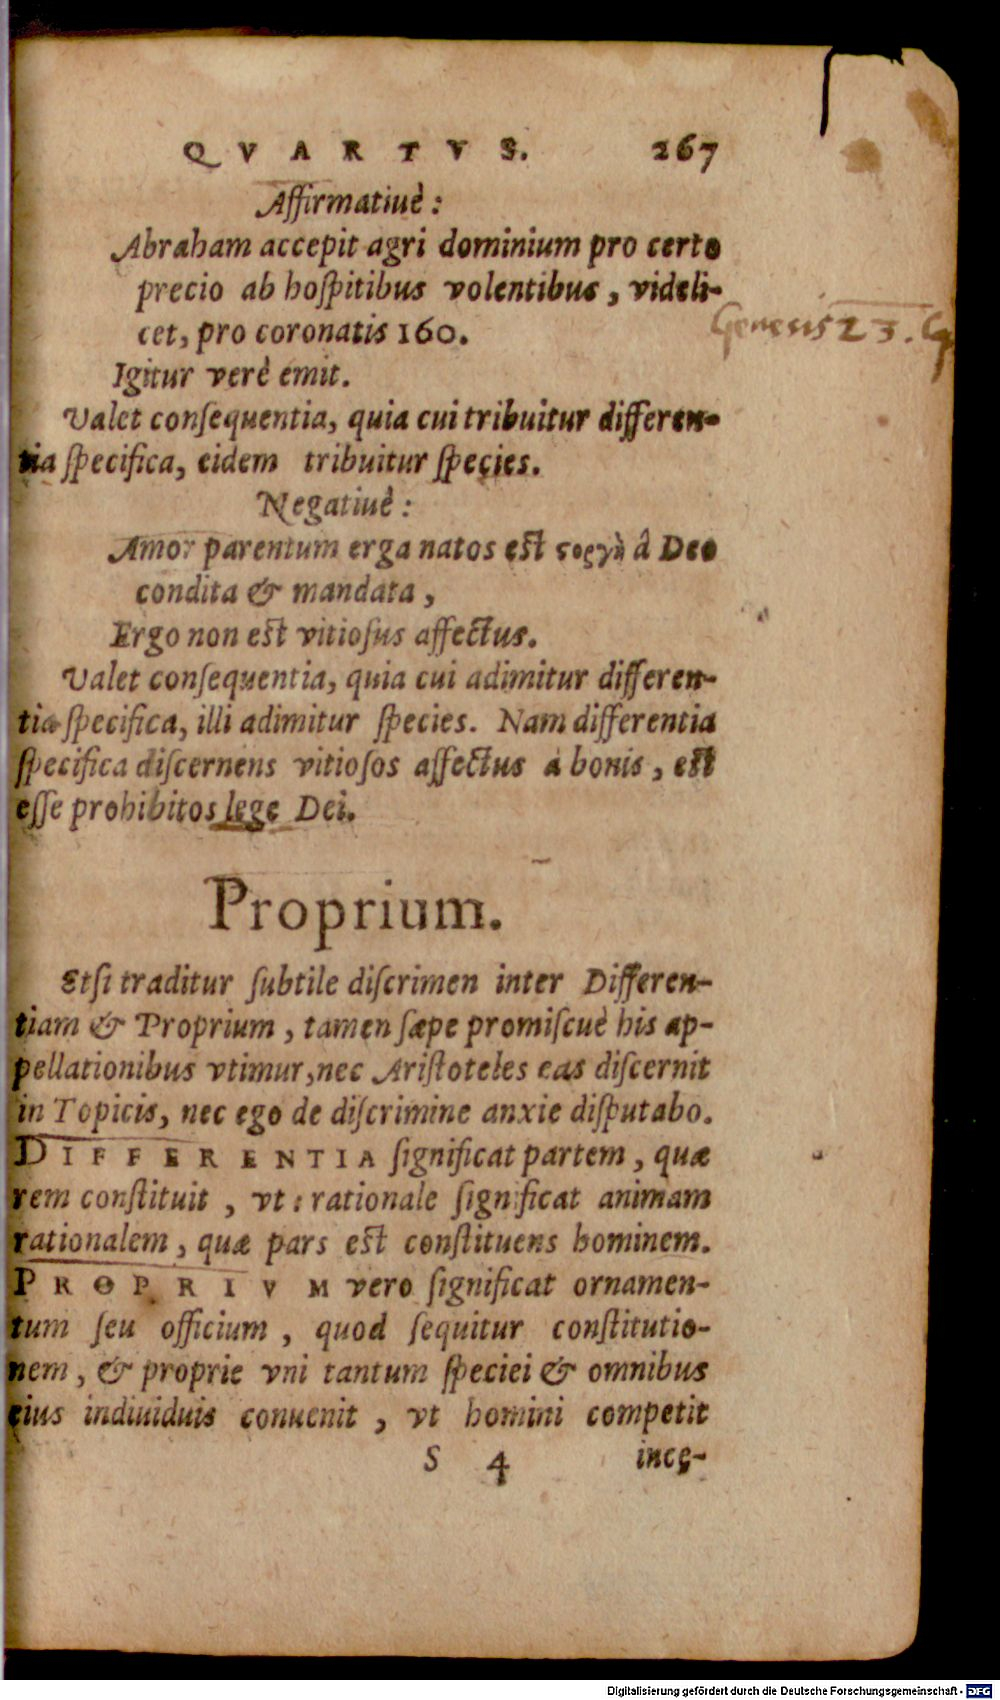 QVARTVS. 267
Affirmatiuè:
Abraham accepit agri dominium pro certo
precio ab hoſpitibus volentibus, videli-
cet, pro coronatis 160.
Genesis 23.
Igitur verè emit.
Valet conſequentia, quia cui tribuitur differen-
tia ſpecifica, eidem tribuitur ſpecies.
Negatiuè:
Amor parentum erga natos est ςοργὴ â Deo
condita & mandata,
Ergo non est vitioſus affectus.
Valet conſequentia, quia cui adimitur differen-
tia ſpecifica, illi adimitur ſpecies. Nam differentia
ſpecifica diſcernens vitioſos affectus à bonis, est
eſſe prohibitos lege Dei.
Proprium.
Etſi traditur ſubtile diſcrimen inter Differen-
tiam & Proprium, tamen ſæpe promiſcuè his ap-
pellationibus vtimur, nec Ariſtoteles eas diſcernit
in Topicis, nec ego de diſcrimine anxie diſputabo.
DIFFERENTIA ſignificat partem, quæ
rem conſtituit, vt: rationale ſignificat animam
rationalem, quæ pars est conſtituens hominem.
PROPRIVM vero ſignificat ornamen-
tum ſeu officium, quod ſequitur conſtitutio-
nem, & proprie vni tantum ſpeciei & omnibus
eius indiuiduis conuenit, vt homini competit
S 4 ince-
Digitalisierung gefördert durch die Deutsche Forschungsgemeinschaft - DFG